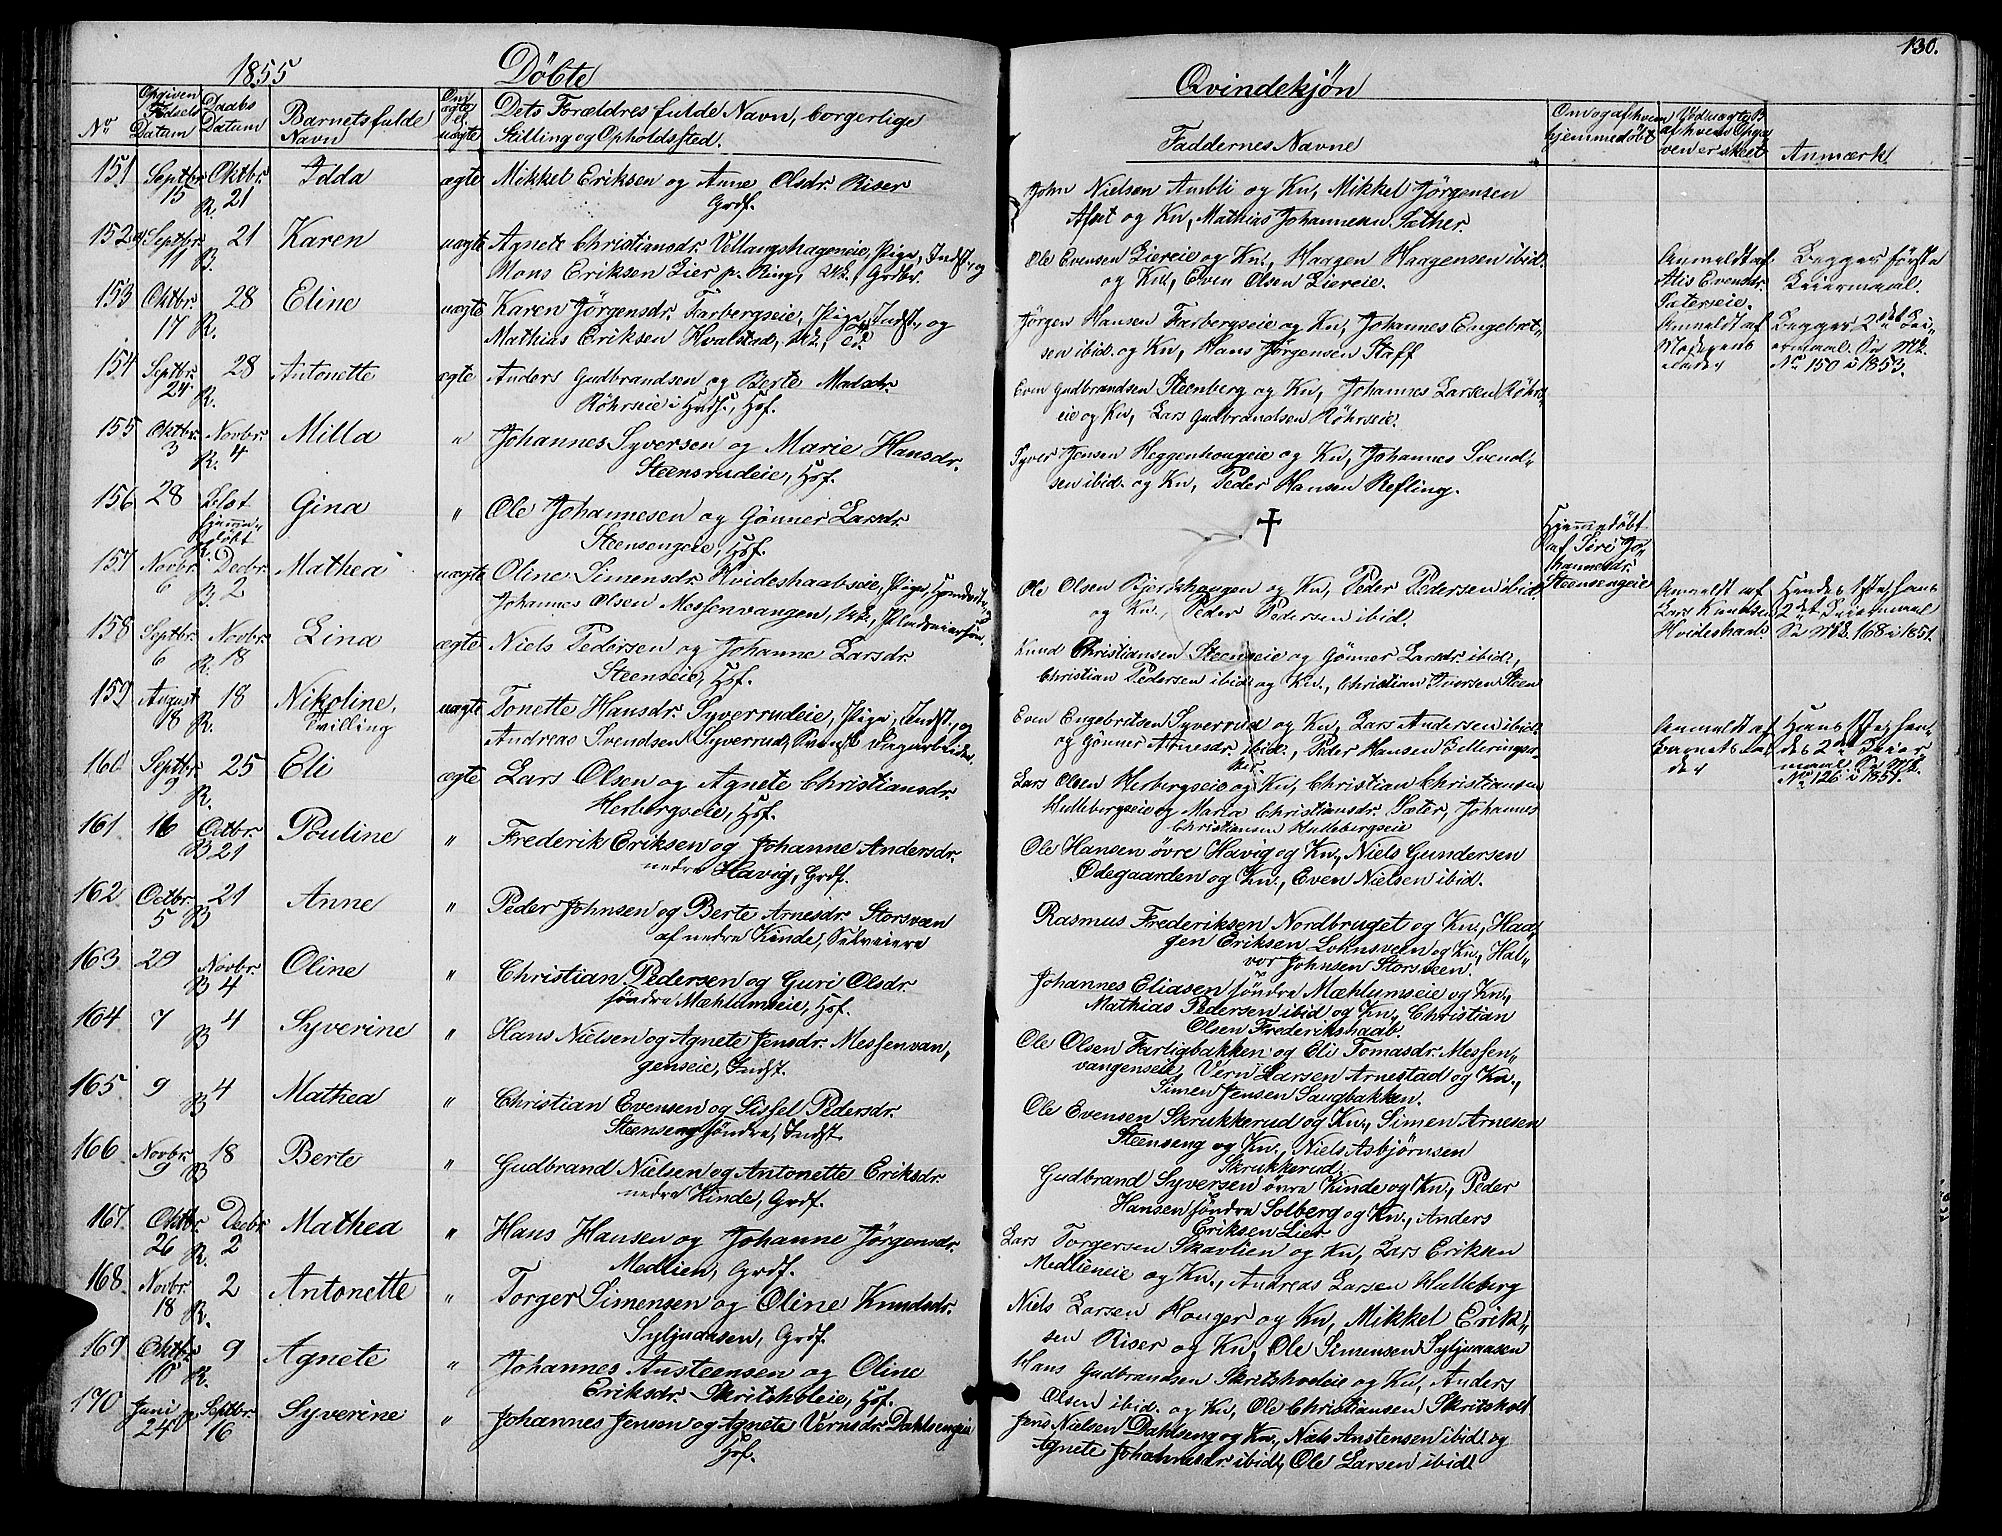 130.
1855
Döbte
Qvindekjøn
No
Opgiven Fødsels Datum
Daabs Datum
Barnets fulde Navn
Om ægte el. uægte
Dets Forældres fulde Navn, borgerlige
Stilling og Opholdssted.
Faddernes Navne
Om og af hvem hjemmedöbt
Ved uægte B. af hvem Opgaven er skeet
Anmærk
151 Septbr. 15 Oktbr. 21 R. Idda ægte Mikkel Eriksen og Anne Olsdr. Riser
Grdf.
John Nielsen Ambli og Kn, Mikkel Jörgensen
og Kn, Mathias Johannesen Sæther.
152 Septbr. 11 21 B. Karen uægte Agnete Christiansdr. Vollangshageneie, Pige, Indst. og
Mons Eriksen Lier p. Ring, Uk., Grdbr.
Ole Evensen Liereie og Kn., Haagen Haagensen ibid.
og Kn., Even Olsen Liereie.
Anmeldt af
Alis Evensdr.
Sæterseie.
Begges förste
Leiermaal.
153 Oktbr. 17 28 R. Eline uægte Karen Jörgensdr. Farbergseie, Pige, Indst., og
Mathias Eriksen Hvalstad, Uk.,
Jörgen Hansen Farbergseie og Kn, Johannes Engebret-
sen ibid. og Kn, Hans Jörgensen Staff
Anmeldt af
Moderens
Begges 2det Lei-
ermaal. Se Mk.
No 150 i 1853.
154 Septbr. 24 28 R. Antonette ægte Anders Gudbrandsen og Berte Madsdr.
Röhrseie i Hudf., Hsf.
Even Gudbrandsen Steenberg og Kn, Johannes Larsen Röhrs-
eie og Kn, Lars Gudbrandsen Röhrseie.
155 Oktbr. 3 Novbr. 4 R. Milla " Johannes Syversen og Marie Hansdr.
Steensrudeie, Hsf.
Syver Jensen Heggenhougeie og Kn, Johannes Svend-
sen ibid. og Kn, Peder Hansen Refling.
156 28 blot hjemmedöbt R. Gina " Ole Johannesen og Gönner Larsdr.
Steensengeie, Hsf.
†
Hjemmedöbt
af Siri Jo-
hannesdr.
Steensengeie
157 Novbr. 6 Decbr. 2 B. Mathea uægte Oline Simensdr. Hvideshaabseie, Pige,
Johannes Olsen Messenvangen, Uk., Pladseiersön.
Ole Olsen Bjerkehaugen og Kn, Peder Pedersen ibid.
og Kn, Peder Pedersen ibid.
Anmeldt af
Lars Knudsen
Hvideshaab.
Hendes 1ste, hans
2det Leiermaal
Se Mk. 168 i 1851.
158 Septbr. 6 Novbr. 18 R. Lina ægte Niels Pedersen og Johanne Larsdr.
Steenseie, Hsf.
Knud Christiansen Steenseie og Gönner Larsdr. ibid.,
Christian Pedersen ibid. og Kn., Christian Iversen Steen
159 August 18 18 R. Nikoline, Tvilling uægte Tonette Hansdr. Syverrudeie, Pige, Indst., og
Andreas Svendsen Syverrud, Svensk Dagarbeider.
Even Engebritsen Syverrud og Kn, Lars Andersen ibid.
og Gönner Arnesdr. ibid., Peder Hansen
Anmeldt af
Barnets Fa-
der
Hans 1ste, hen-
des 2det Leier
maal. Se Mk.
No 126 i 1851.
160 Septbr. 9 25 R. Eli ægte Lars Olsen og Agnete Christiansdr.
Herbergseie, Hsf.
Lars Olsen Herbergseie og Kn, Christian Christiansen
Hullebergseie og Maria Christiansdr. Sæter, Johannes
Christiansen Hullebergseie
161 16 Octbr. 21 B Pouline " Frederik Eriksen og Johanne Andersdr.
nedre Havig, Grdf.
Ole Hansen övre Havig og Kn., Niels Gundersen
Ödegaarden og Kn., Even Nielsen ibid.
162 Octbr. 5 21 B Anne " Peder Johnsen og Berte Arnesdr. Storsveen
af nedre Kinde, Selveiere
Rasmus Frederiksen Nordbruget og Kn., Haa-
gen Eriksen Lohnsveen og Kn., Hal-
vor Johnsen Storsveen.
163 29 Novbr. 4 B Oline " Christian Pedersen og Guri Olsdr.
söndre Mæhlumseie, Hsf.
Johannes Eliasen söndre Mæhlumseie og Kn.,
Mathias Pedersen ibid og Kn., Christian
Olsen Frederikshaab.
164 7 4 B Syverine " Hans Nielsen og Agnete Jensdr. Messenvan-
genseie, Indst.
Ole Olsen Farligbakken og Eli Tomasdr. Messen-
vangenseie, Vern Larsen Arnestad og Kn.,
Simen Jensen Saugbakken.
165 9 4 B Mathea " Christian Evensen og Sissel Pedersdr.
Steenseng söndre, Indst.
Ole Evensen Skrukkerud og Kn., Simen Arnesen
Steenseng og Kn., Niels Asbjörnsen
Skrukkerud.
166 Novbr. 9 18 B Berte " Gudbrand Nielsen og Antonette Eriksdr.
nedre Kinde, Grdf.
Gudbrand Syversen övre Kinde og Kn., Peder
Hansen söndre Solberg og Kn., Anders
Eriksen Lier
167 Oktbr. 26 Decbr. 2 R. Mathea " Hans Hansen og Johanne Jörgensdr.
Medlien, Grdf.
Lars Torgersen Skavlien og Kn, Lars Eriksen
Medlieneie og Kn., Andreas Larsen Hulleberg
168 Novbr. 18 2 R. Antonette " Torger Simensen og Oline Knudsdr.
Syljuaasen, Grdf.
Niels Larsen Houger og Kn, Mikkel Erik-
sen Riser og Kn, Ole Simensen Syljuaasen
169 Oktbr. 10 9 R. Agnete " Johannes Ansteensen og Oline
Eriksdr. Skritsholeie, Hsf.
Hans Gudbrandsen Skritsholeie og Kn, Anders
Olsen ibid. og Kn, Ole Christiansen Skritshol
170 Juni 24 Septbr. 16 Syverine " Johannes Jensen og Agnete Vernsdr. Dahlsengeie
Hsf.
Jens Nielsen Dahlseng og Kn., Niels Anstensen ibid. og
Agnete Johannesdr. ibid, Ole Larsen ibid.